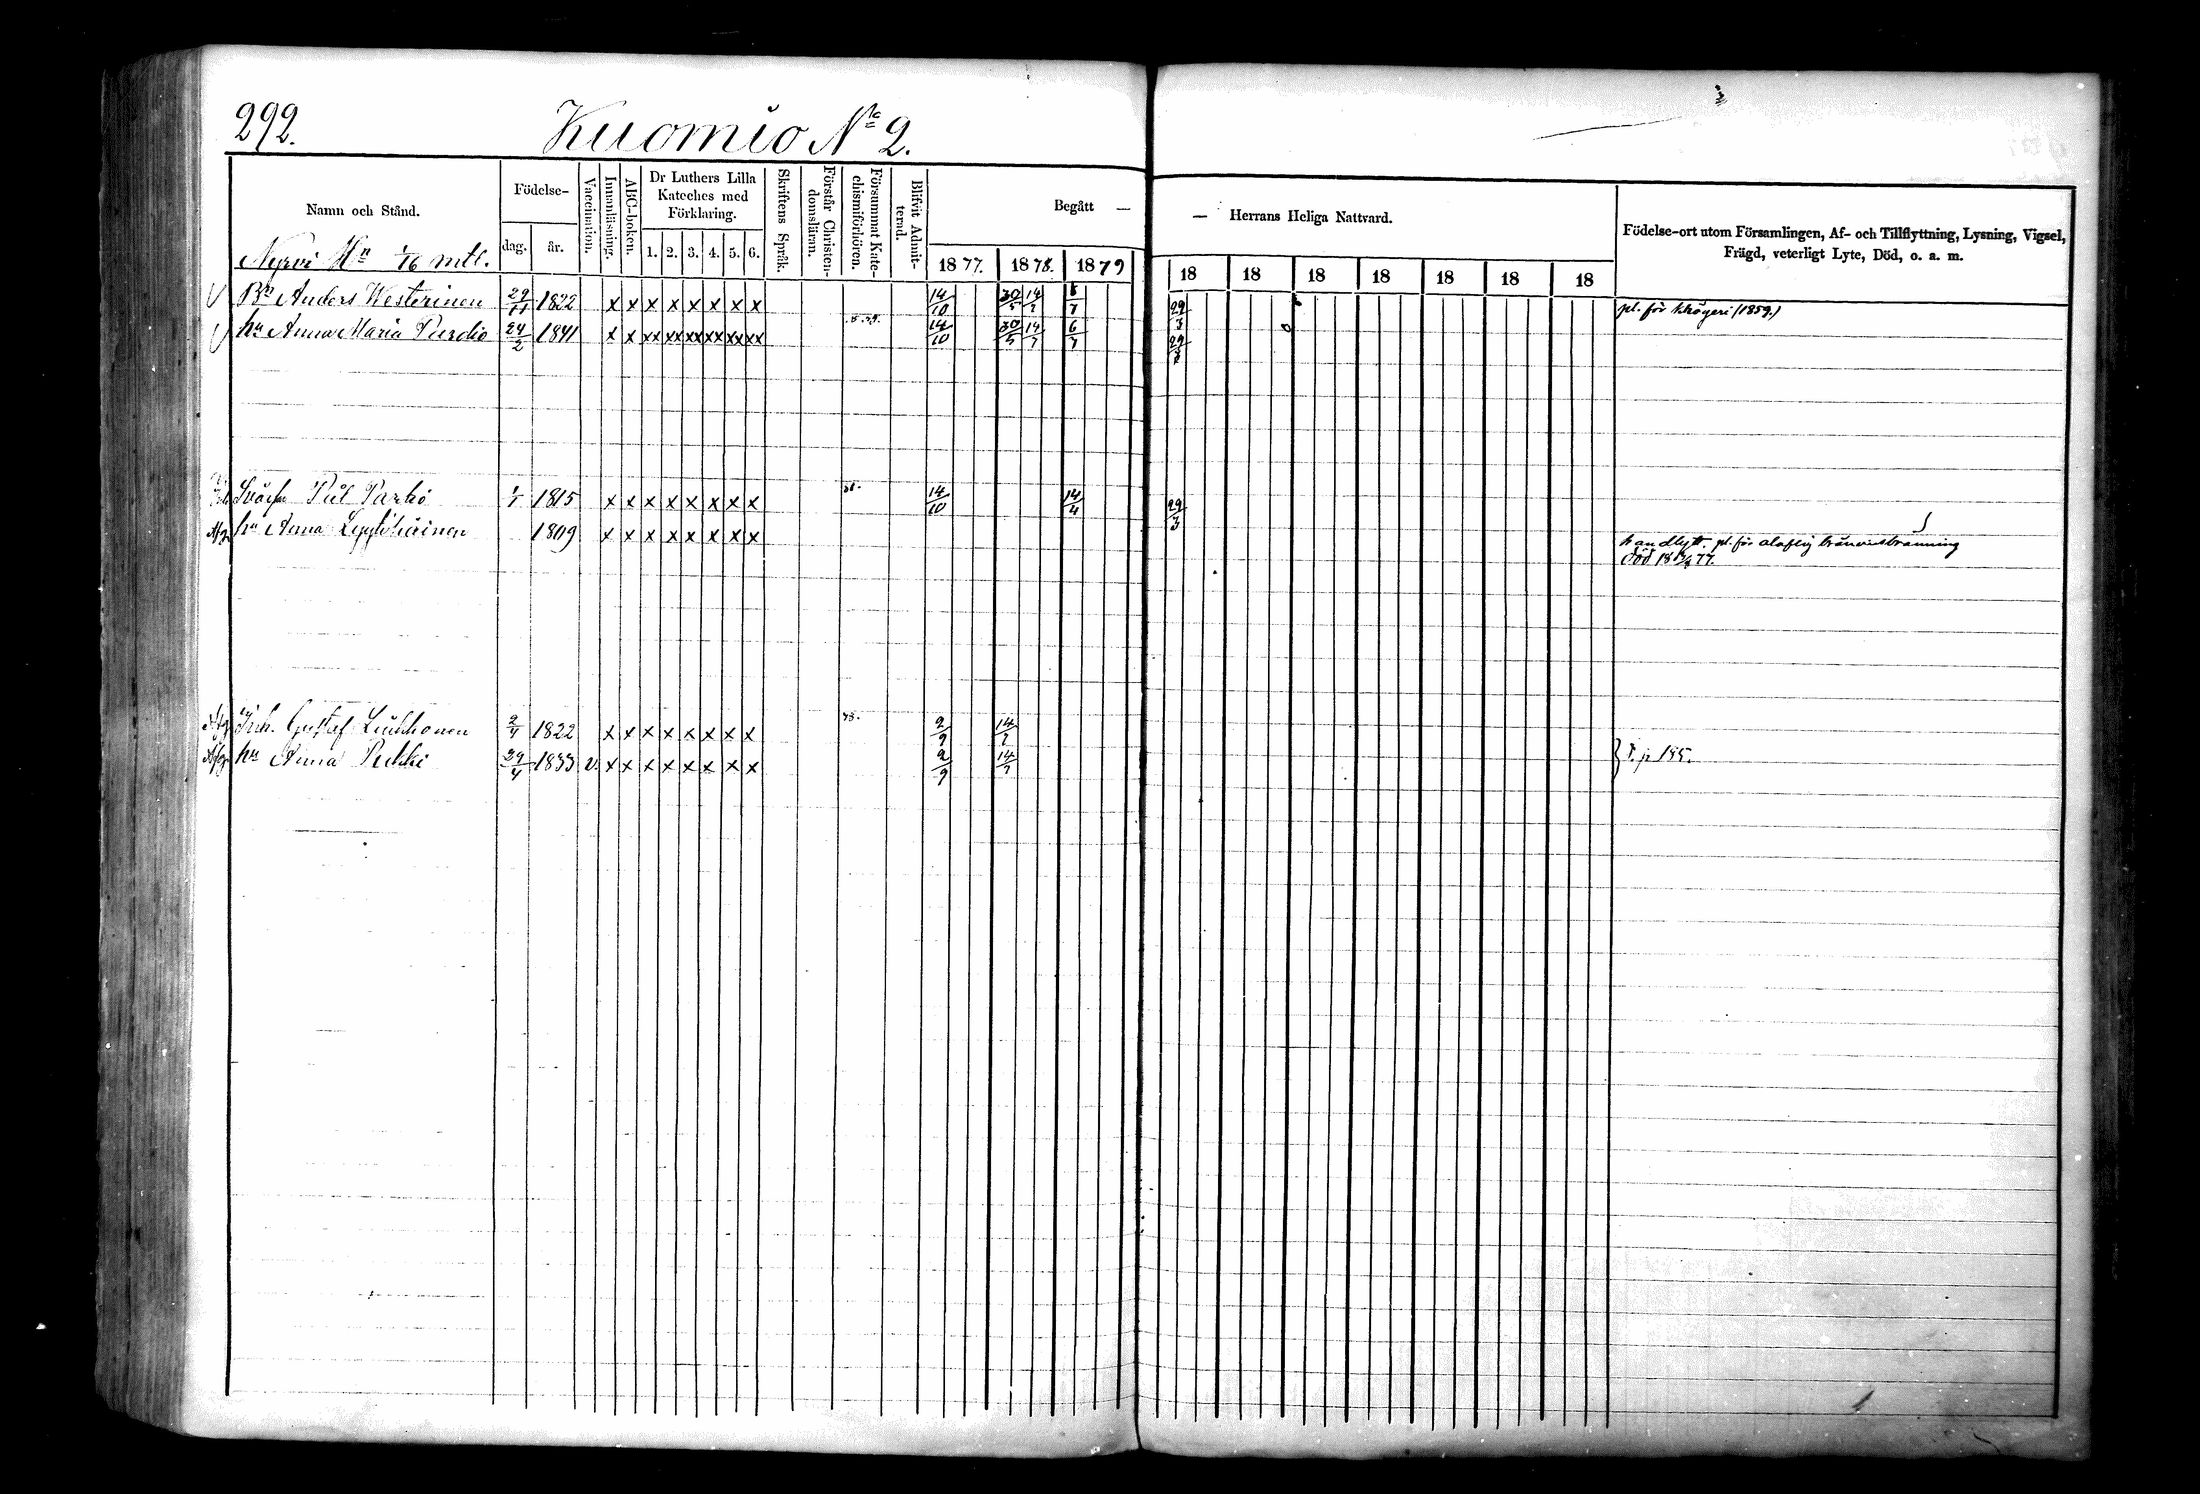 292.
Kuomio No 2.
Namn och Stånd.
Födelse-
dag.
år.
Vaccination.
Innanläsning.
ABC-boken.
Dr Luthers Lilla
Kateches med
Förklaring.
1. 2. 3. 4. 5. 6.
Skriftens Språk.
Förstår Christen-
domsläran.
Försummat Kate-
chismiförhören.
Blifvit Admit-
terad.
Begått —
— Herrans Heliga Nattvard.
Födelse-ort utom Församlingen, Af- och Tillflyttning, Lysning, Vigsel,
Frägd, veterligt Lyte, Död, o. a. m.
1877. 1878. 1879 18 18 18 18 18 18 18
1/16 mtl.
Bn Anders Westerinen 29/11 1822 x x x x x x x x 14/10 30/5 14/7 29/3 pl. för (1859.)
hu Anna Maria 24/2 1841 x x xx xx xx xx xx xx 14/10 30/5 14/7 6/7 29/3
Pål Parko 1/1 1815 x x x x x x x x 14/10 14/4 29/3
hu Anna 1809 x x x x x x x x pl. för olaflig bränvinsbränning
död 18 77.
Inh. Gustaf 2/4 1822 x x x x x x x x 2/9 14/7
hu Anna Pukki 29/4 1833 v. x x x x x x x x 2/9 14/7 p 195.